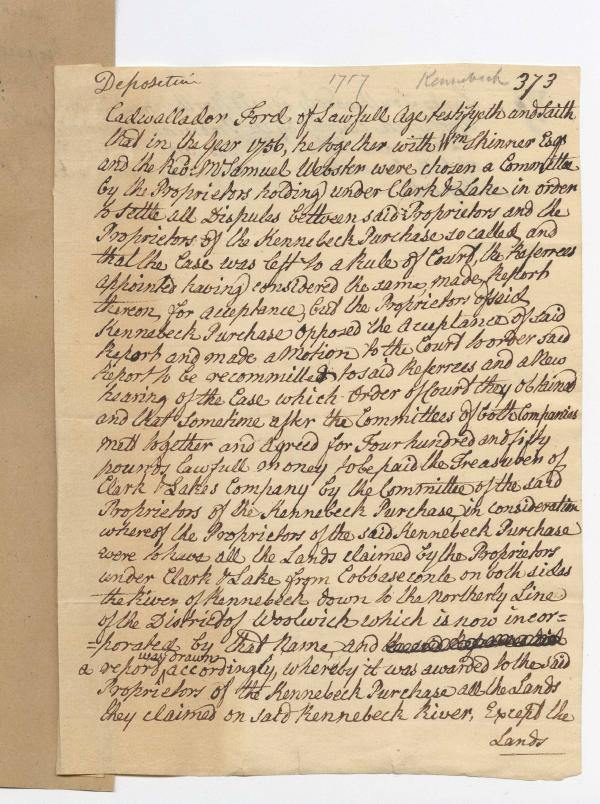 Deposition 1757 Kennebeck 373
Cadwallador Ford of Lawfull Age testifyeth and saith
that in the Year 1756, he together with Wm Skinner Esqr
and the Revd. Mr Samuel Webster were chosen a Committee
by the Proprietors holding under Clark & Lake in order
to settle all Disputes between said Proprietors and the
Proprietors of the Kennebeck Purchase so called, and
that the Case was left to a Rule of Court, the Referrees
appointed having considered the same, made Report
thereon, for acceptance, but the Proprietors of said
Kennebeck Purchase opposed the acceptance of said
Report and made a Motion to the Court to order said
Report to be recommitted to said Referrees and a New
hearing of the Case which Order of Court they obtained
and that Sometime after the Committees of both Companies
mett together and agreed for Four hundred and fifty
pounds Lawfull money to be paid the Treasurer of
Clark & Lakes Company by the Committee of the said
Proprietors of the Kennebeck Purchase in consideration
whereof the Proprietors of the said Kennebeck Purchase
were to have all the Lands claimed by the Proprietors
under Clark & Lake from Cobbaseconte on both sides
the River of Kennebeck down to the northerly Line
of the District of Woolwich which is now incor=
=porated by that Name, and
a report was drawn accordingly, whereby it was awarded to the said
Proprietors of the Kennebeck Purchase all the Lands
they claimed on said Kennebeck River, Except the
Lands